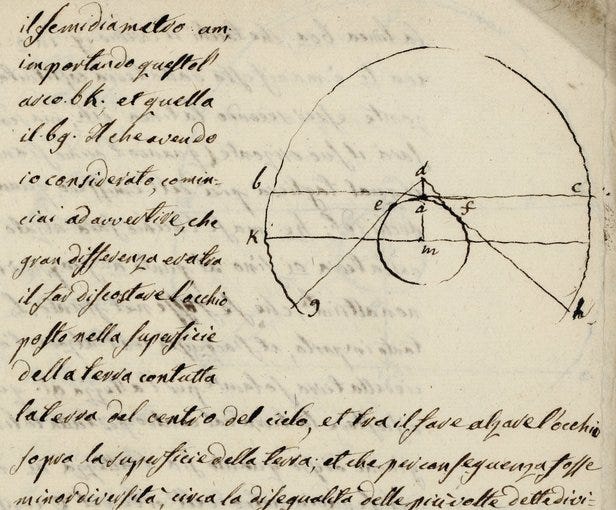 il semidiametro am,
importando quest'ol
arco. bk. et quella
il bg. Il che avendo
io considerato, comin-
ciai ad avvertire, che
gran differenza era tra
il far discostare l'occhio
posto nella superficie
della terra con tutta
la terra dal centro del cielo, et tra il fare alzare l'occhio
sopra la superficie della terra; et che per conseguenza fosse
minor diversità, circa la disegualità delle più volte dette divi-
d
b
e
a
f
c
k
m
g
h